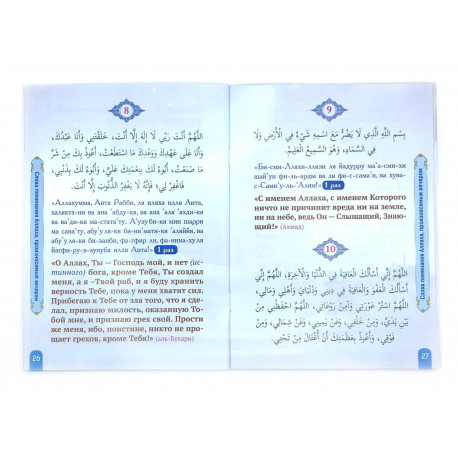 8
اللَّهُمَّ أَنْتَ رَبِّي لَا إِلَهَ إِلَّا أَنْتَ، خَلَقْتَنِي وَأَنَا عَبْدُكَ،
وَأَنَا عَلَى عَهْدِكَ وَوَعْدِكَ مَا اسْتَطَعْتُ، أَعُوذُ بِكَ مِنْ شَرِّ
مَا صَنَعْتُ، أَبُوءُ لَكَ بِنِعْمَتِكَ عَلَيَّ، وَأَبُوءُ لَكَ بِذَنْبِي،
فَاغْفِرْ لِي، فَإِنَّهُ لَا يَغْفِرُ الذُّنُوبَ إِلَّا أَنْتَ!
«Аллахумма, Анта Рабби, ля иляха илля Анта,
халякта-ни ва ана 'абду-ка, ва ана 'аля 'ахди-ка
ва ва'ди-ка ма-стата'ту. А'узу би-ка мин шарри
ма сана'ту, абу'у ля-ка би-ни'мати-ка 'аляййа, ва
абу'у ля-ка би-занби, фа-гфир ли, фа-инна-ху ля
йагфи-ру-з-зунуба илля Анта!» 1 раз
«О Аллах, Ты — Господь мой, и нет (ис-
тинного) бога, кроме Тебя, Ты создал
меня, а я –Твой раб, и я буду хранить
верность Тебе, пока у меня хватит сил.
Прибегаю к Тебе от зла того, что я сде-
лал, признаю милость, оказанную То-
бой мне, и признаю грех свой. Прости
же меня, ибо, поистине, никто не про-
щает грехов, кроме Тебя!» (аль-Бухари)
Слова поминания Аллаха, произносимые вечером
26
9
بِسْمِ اللَّهِ الَّذِي لَا يَضُرُّ مَعَ اسْمِهِ شَيْءٌ فِي الْأَرْضِ وَلَا
فِي السَّمَاءِ، وَهُوَ السَّمِيعُ الْعَلِيمُ.
«Би-сми-Лляхи-ллязи ля йадурру ма'а-сми-хи
шай'ун фи-ль-арды ва ля фи-с-сама'и, ва хува-
с-Сами'у-ль-'Алим!» 1 раз
«С именем Аллаха, с именем Которого
ничто не причинит вреда ни на земле,
ни на небе, ведь Он — Слышащий, Знаю-
щий!» (Ахмад)
10
اللَّهُمَّ إِنِّي أَسْأَلُكَ الْعَافِيَةَ فِي الدُّنْيَا وَالْآخِرَةِ، اللَّهُمَّ إِنِّي
أَسْأَلُكَ الْعَفْوَ وَالْعَافِيَةَ فِي دِينِي وَدُنْيَايَ وَأَهْلِي وَمَالِي،
اللَّهُمَّ اسْتُرْ عَوْرَتِي، وَآمِنْ رَوْعَاتِي، اللَّهُمَّ احْفَظْنِي مِنْ
بَيْنِ يَدَيَّ، وَمِنْ خَلْفِي، وَعَنْ يَمِينِي، وَعَنْ شِمَالِي، وَمِنْ
فَوْقِي، وَأَعُوذُ بِعَظَمَتِكَ أَنْ أُغْتَالَ مِنْ تَحْتِي.
Слова поминания Аллаха, произносимые вечером
27